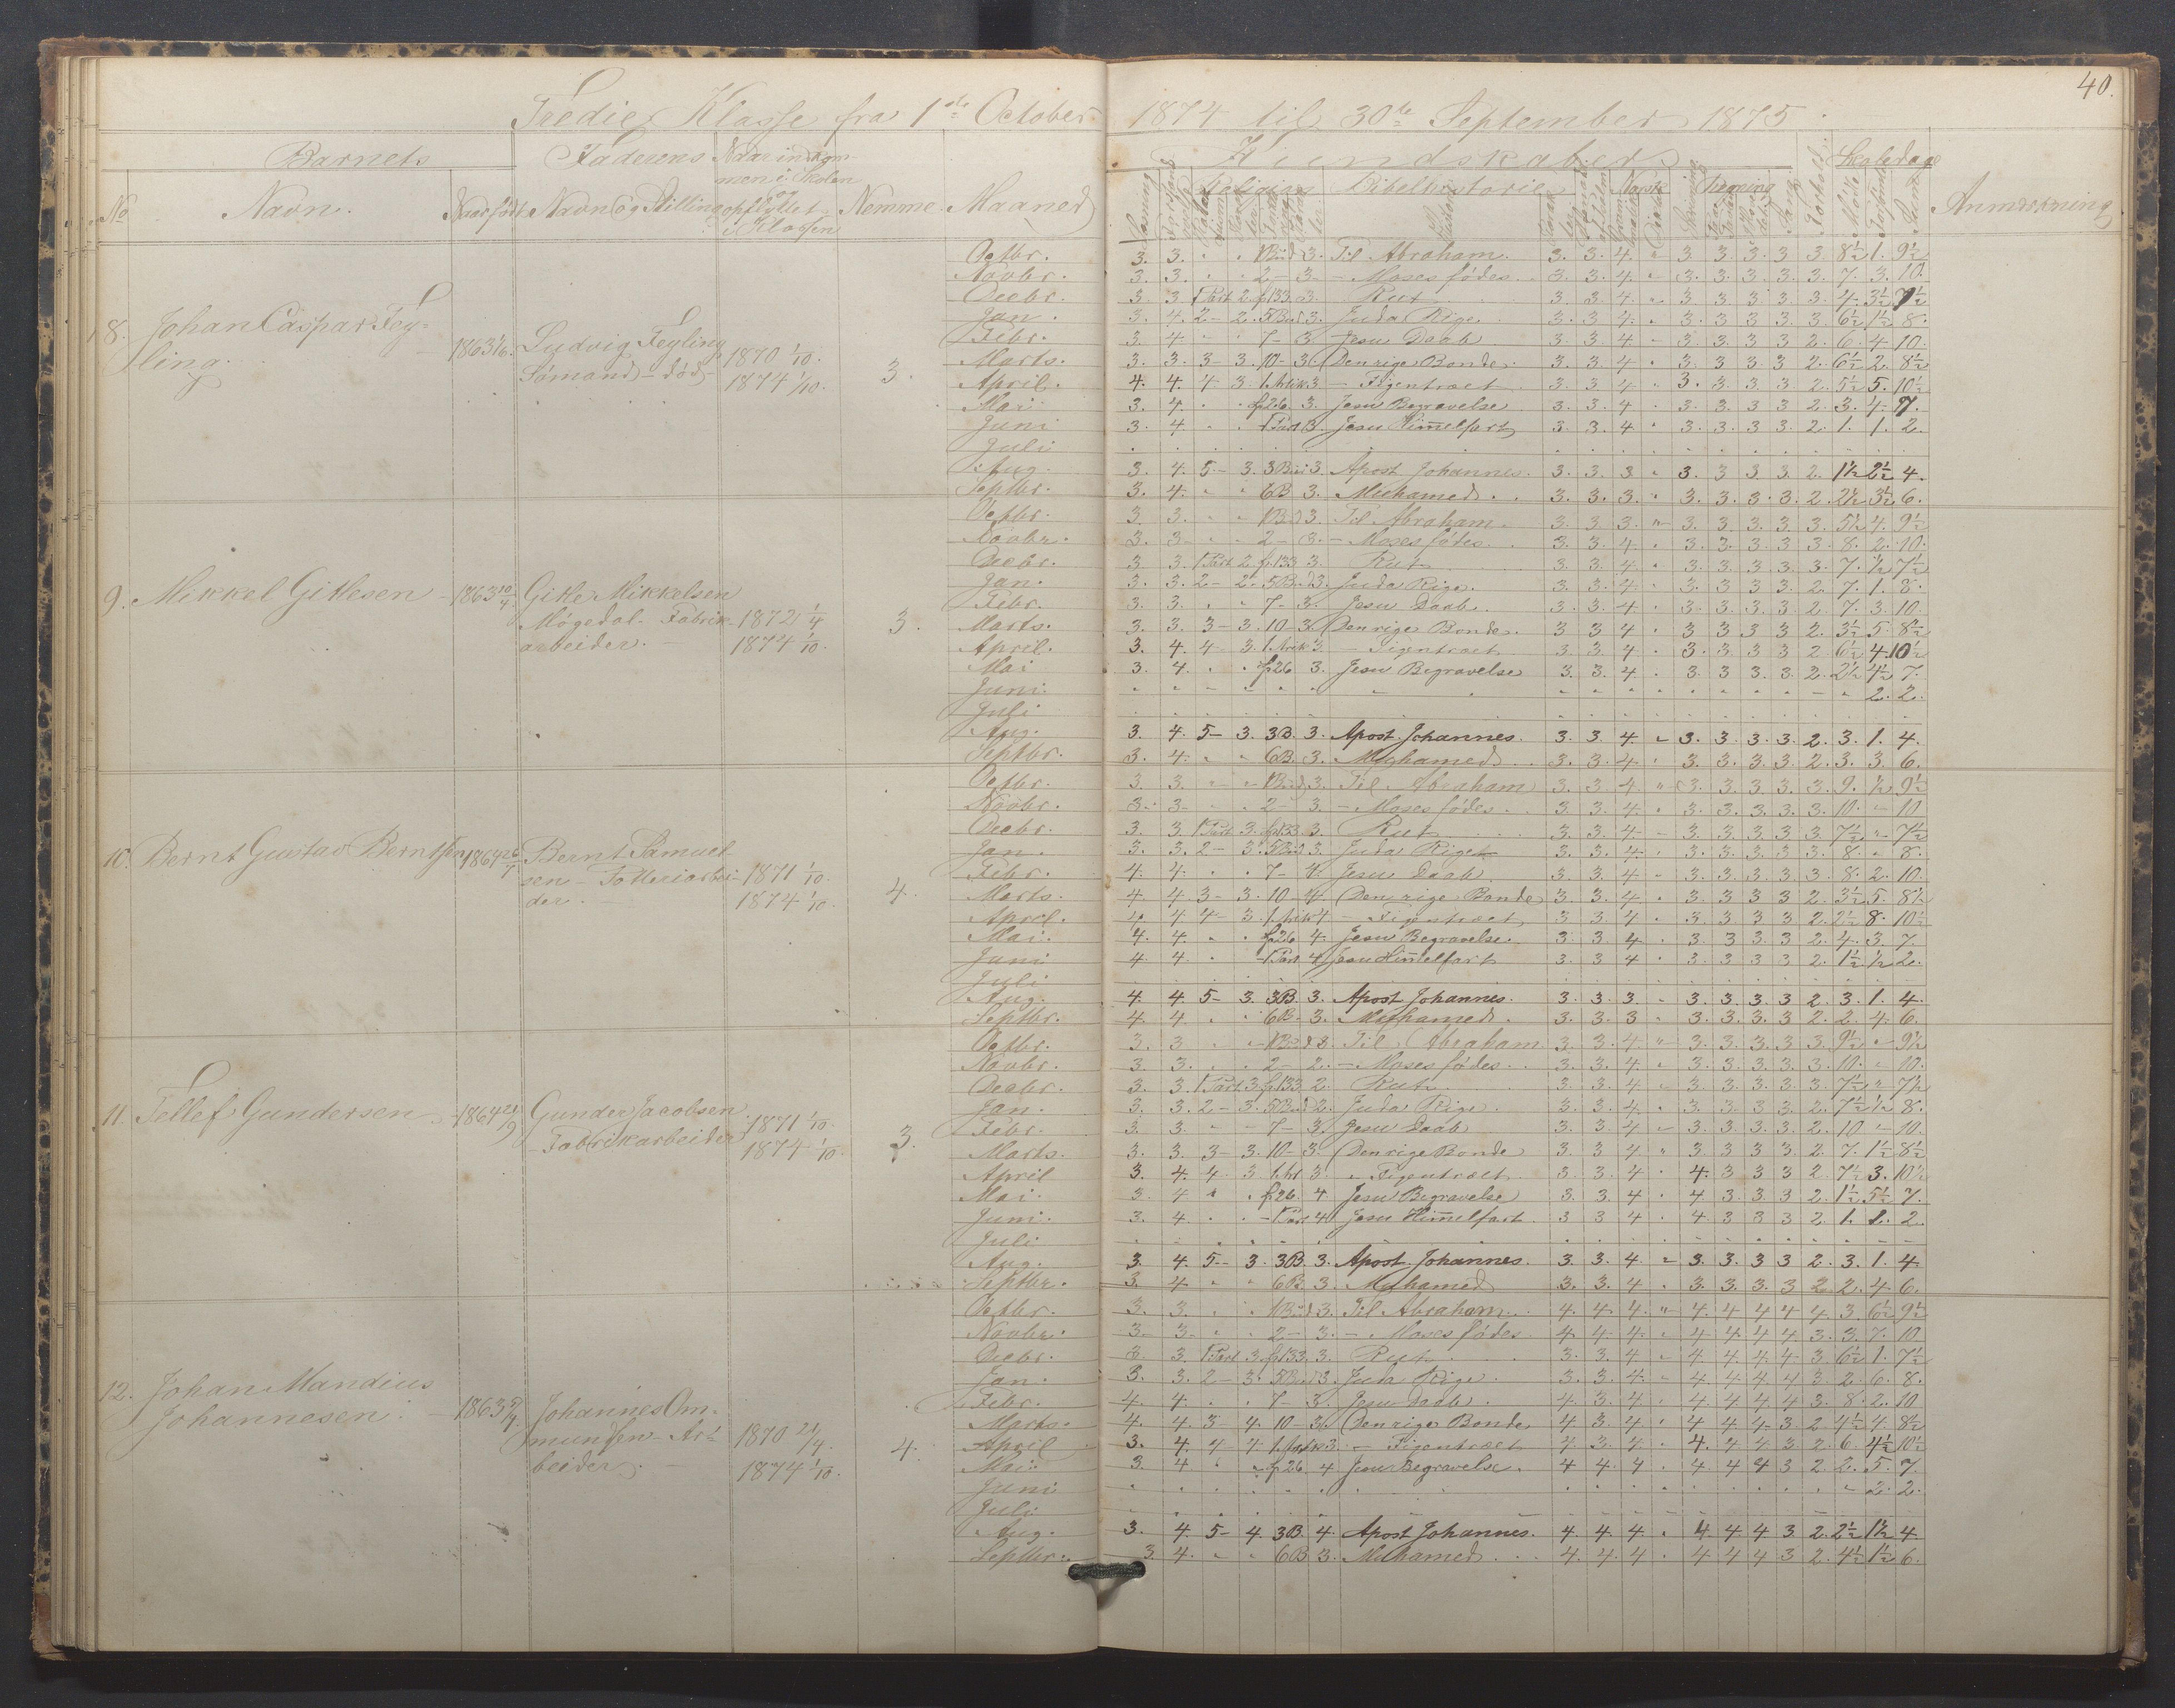 40.
Tredie Klasse fra 1ste October 1874 til 30te September 1875.
Barnets Faderens Naar indkom-
men i Skolen
og
opflyttet
i Klassen
No Navn. Naar født Navn og Stilling Nemme. Maaned
Kundskaber Skoledage
Religion Bibelhistorie Norsk Regning
Anmærkning
8. Johan Caspar Fey-
ling.
1863 1/6. Ludvig Feyling
Sømand - død -
1870 1/10.
1874 1/10.
3.
Octbr. 3. 3. " " 1 Bud 3. Til Abraham. 3. 3. 4. " 3 3. 3. 3 3. 8½ 1. 9½
Novbr. 3. 3. " " 2 - 3. - Moses fødes. 3. 3. 4. " 3. 3. 3. 3. 3. 7. 3. 10.
Decbr. 3. 3. 1 Part 2. f.133. 3. Rut 3. 3. 4. " 3. 3. 3. 3. 3. 4. 3½ 7½
Jan. 3. 4. 2 - 2. 5 Bud 3. Juda Rige. 3. 3. 4. " 3. 3. 3. 3. 3. 6½ 1½ 8.
Febr. 3. 4. " " 7 - 3. Jesu Daab 3. 3. 4. " 3. 3. 3. 3. 2. 6. 4. 10.
Marts. 3. 3. 3 - 3. 10 - 3. Den rige Bonde. 3. 3. 4. " 3. 3. 3. 3. 2. 6½ 2. 8½
April. 4. 4. 4 3. 1. Artik 3 - Figentræet 3. 3. 4 " 3. 3. 3. 3. 2. 5½ 5. 10½
Mai 3. 4. " " f.26. 3. Jesu Begravelse 3. 3. 4 " 3. 3. 3. 3. 2. 3. 4. 7.
Juni 3. 4 " " 1 Part 3. Jesu Him̄elfart 3. 3. 4 " 3. 3. 3. 3. 2. 1. 1. 2.
Juli
Aug. 3. 4. 5 - 3. 3 Bud 3. Apost. Johannes. 3. 3. 3 " 3. 3. 3. 3. 2. 1½ 2½ 4.
Septbr. 3. 4. " " 6 B 3. Muhamed. 3. 3. 3. " 3. 3. 3. 3. 2. 2½ 3½ 6.
9. Mikkel Gitlesen 1863 10/4. Gitle Mikkelsen
Møgedal. Fabrik-
arbeider.
1872 1/4
1874 1/10.
3.
Octbr. 3. 3. " " 1 Bud 3. Til Abraham. 3. 3. 3. " 3. 3. 3. 3. 3. 5½ 4. 9½
Novbr. 3. 3. " " 2 - 3. - Moses fødes. 3. 3. 4. " 3. 3. 3. 3. 3. 8. 2. 10.
Decbr. 3. 3. 1 Part 2. f.133 3. Rut 3. 3. 4. " 3. 3. 3. 3. 3. 7. ½ 7½
Jan. 3. 3. 2 - 2. 5 Bud 3. Juda Rige. 3. 3. 4. " 3. 3. 3. 3. 2. 7. 1. 8.
Febr. 3. 3. " " 7 - 3. Jesu Daab. 3. 3. 4. " 3. 3. 3. 3. 2. 7. 3. 10.
Marts. 3. 3. 3 - 3. 10 - 3. Den rige Bonde. 3 3 4 " 3 3 3 3 2. 3½ 5. 8½
April. 3. 4. 4 3. 1. Artik 3. - Figentræet 3 3 4 " 3. 3. 3 3 2. 6½ 4. 10½
Mai 3. 4. " " f.26 3. Jesu Begravelse 3. 3. 4. " 3. 3 3. 3. 2. 2½ 4½ 7.
Juni. " 2. 2.
Juli
Aug. 3. 4. 5 - 3. 3 B. 3. Apost. Johannes. 3. 3. 4. " 3. 3. 3. 3. 2. 3. 1. 4.
Septbr. 3. 4. " " 6 B. 3. Muhamed. 3. 3. 4. " 3. 3. 3. 3. 2. 3. 3. 6.
10. Bernt Gustav Berntsen 1864 26/1 Bernt Samuel-
sen - Potteriarbei-
der.
1871 1/10.
1874 1/10.
4.
Octbr. 3. 3. " " 1 Bud 3. Til Abraham 3. 3. 4 " 3. 3. 3. 3. 3. 9. ½ 9½
Novbr. 3. 3. " " 2 - 3. - Moses fødes. 3. 3 4. " 3. 3. 3. 3. 3. 10. " 10
Decbr. 3. 3. 1 Part 3. f.133. 3. Rut 3. 3. 4. " 3. 3. 3. 3. 3. 7½ " 7½
Jan. 3. 3. 2 - 3. 5 Bud 3. Juda Rige 3. 3. 4. " 3. 3. 3. 3. 3. 8. " 8.
Febr. 4. 4. " " 7 - 4. Jesu Daab. 3. 3. 4 " 3. 3. 3. 3. 3. 8. 2. 10.
Marts. 4. 4 3 - 3. 10 - 4. Den rige Bonde 3. 3. 4. " 3. 3. 3. 3 2. 3½ 5. 8½
April. 4. 4 4 - 3. 1. Artik 4 - Figentræet 3. 3 4 " 3. 3. 3. 3 2. 2½ 8. 10½
Mai. 4. 4. " " f.26 4. Jesu Begravelse. 3. 3. 4 " 3. 3 3. 3 2. 4. 3. 7.
Juni 4. 4. " " 1 Part 4 Jesu Him̄elfart 3. 3 4 " 3. 3. 3 3 2. 1½ ½ 2.
Juli
Aug. 4. 4. 5 - 3. 3 B. 3. Apost. Johannes. 3. 3. 3. " 3. 3. 3. 3 2. 3. 1. 4.
Septbr. 4. 4. " " 6 B. 3. Muhamed. 3. 3. 3 " 3. 3. 3. 3 2. 2. 4. 6.
11. Tellef Gundersen 1864 21/9 Gunder Jacobsen
- Fabrikarbeider
1871 1/10.
1874 1/10.
3.
Octbr. 3. 3 " " 1 Bud 3. Til Abraham 3. 3. 4 " 3. 3. 3. 3. 3. 9½ " 9½
Novbr. 3. 3. " " 2 - 2. - Moses fødes. 3. 3. 4. " 3. 3. 3. 3. 3. 10. " 10.
Decbr. 3. 3. 1 Part 3. f.133 2. Rut 3. 3. 4. " 3. 3. 3. 3. 3. 7½ " 7½
Jan. 3. 3. 2 - 3. 5 Bud 2. Juda Rige. 3. 3. 4. " 3. 3. 3. 3. 2. 7½ ½ 8.
Febr. 3. 3. " " 7 - 3. Jesu Daab 3. 3. 4 " 3. 3. 3. 3. 2. 10 " 10.
Marts. 3. 3. 3 - 3. 10 - 3. Den rige Bonde 3. 3 4 " 3 3 3 3. 2. 7. 1½ 8½
April 3. 4. 4 3. 1. Art 3. " Figentræet 3. 3. 4 " 4. 3 3 3 2 7½ 3. 10½
Mai. 3. 4 " " f.26. 4 Jesu Begravelse 3. 3. 4 " 4. 3. 3. 3 2. 1½ 5½ 7.
Juni. 3. 4. " " 1 Part 4 Jesu Him̄elfart. 3 3 4 " 4. 3 3 3 2. 1. 1. 2
Juli
Aug. 3. 4. 5 - 3. 3 B. 3. Apost. Johannes. 3. 3. 4 " 3. 3. 3. 3 2. 3. 1. 4.
Septbr. 3. 4 " " 6 B 3. Muhamed 3. 3. 4. " 3. 3. 3. 3 2. 2. 4. 6.
12. Johan Mandius
Johannesen.
1863 Johannes Om-
mundsen - Ar-
beider.
1870 21/4.
1874 1/10.
4.
Octbr. 3. 3. " " 1 Bud 3. Til Abraham. 4. 4. 4. " 4. 4. 4. 4 4. 3. 6½ 9½
Novbr. 3. 3. " " 2 - 3. - Moses fødes. 4. 4. 4. " 4. 4. 4. 4. 3. 3. 7. 10
Decbr. 3. 3. 1 Part 3. f.133. 3. Rut 3. 3. 4 " 4. 4. 4. 4. 3. 6½ 1. 7½
Jan. 3. 3. 2 - 3. 5 Bud 3. Juda Rige. 3. 3. 4. " 4. 4. 4. 4 3. 2. 6. 8.
Febr. 4. 4. " " 7 - 3. Jesu Daab. 4. 3. 4. " 4. 4. 4. 4. 3. 8. 2. 10
Marts. 4. 4. 3 - 4. 10 - 3. Den rige Bonde. 4 3. 4. " 4. 4. 4. 3 2. 4½ 4. 8½
April 3. 4. 4 - 4. 1. Artik 3. - Figentræet 4. 3. 4. " 4. 4 4 3 2. 6. 4½ 10½
Mai. 3. 4 " " f.26. 4 Jesu Begravelse. 4 4. 4 " 4. 4 4 3 2. 2. 5. 7.
Juni " 2. 2.
Juli
Aug. 3. 4. 5 - 4. 3 B. 4. Apost Johannes. 4. 4. 4. " 4 4. 4 3 2. 2½ 1½ 4.
Septbr. 3. 4. " " 6 B 3. Muhamed 4. 4. 4 " 4. 4 4 3 2. 4½ 1½ 6.